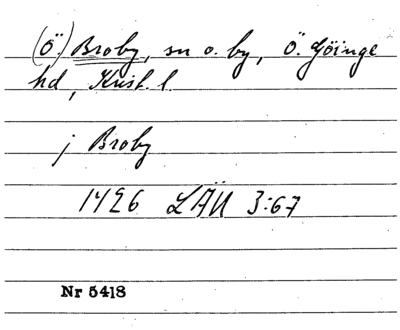 (Ö.) Broby, sn o. by, Ö. Göinge
hd, Krist. l.
j Broby
1426 LÄU 3:67
Nr 5418